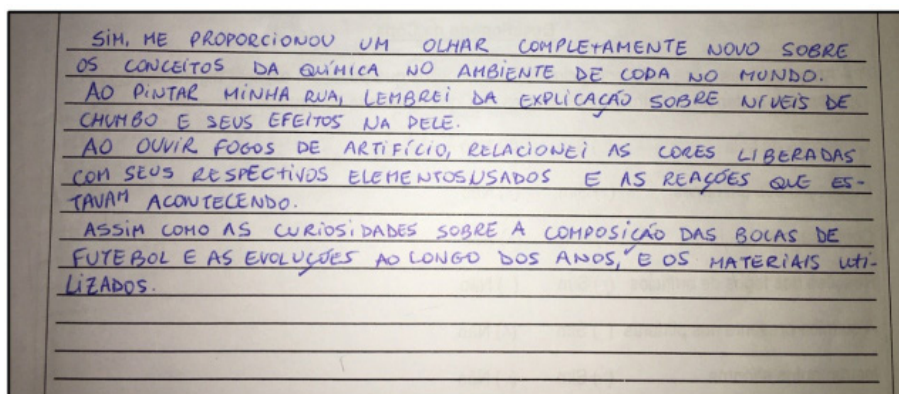 SIM, ME PROPORCIONOU UM OLHAR COMPLETAMENTE NOVO SOBRE
OS CONCEITOS DA QUÍMICA NO AMBIENTE DE CODA NO MUNDO.
AO PINTAR MINHA RUA, LEMBREI DA EXPLICAÇÃO SOBRE NÍVEIS DE
CHUMBO E SEUS EFEITOS NA PELE.
AO OUVIR FOGOS DE ARTIFÍCIO, RELACIONEI AS CORES LIBERADAS
COM SEUS RESPECTIVOS ELEMENTOS USADOS E AS REAÇÕES QUE ES-
TAVAM ACONTECENDO.
ASSIM COMO AS CURIOSIDADES SOBRE A COMPOSIÇÃO DAS BOLAS DE
FUTEBOL E AS EVOLUÇÕES AO LONGO DOS ANOS, E OS MATERIAIS UTI-
LIZADOS.